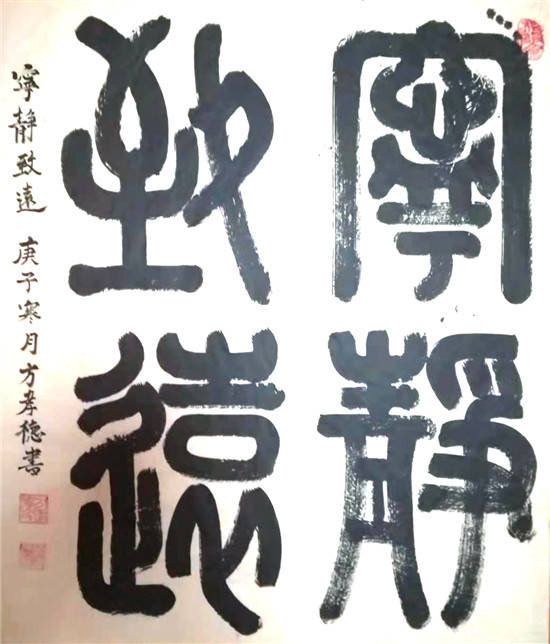 寧靜
致遠
寧靜致遠 庚子寒月方孝德書